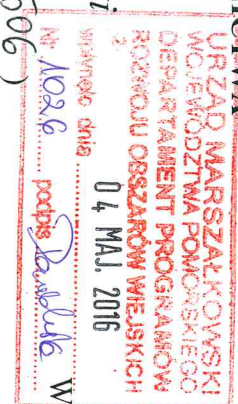 URZĄD MARSZAŁKOWSKI
WOJEWÓDZTWA POMORSKIEGO
DEPARTAMENT PROGRAMÓW
ROZWOJU OBSZARÓW WIEJSKICH
2
04 MAJ. 2016
wpłynęło dnia
Nr 11026 podpis
506)
W